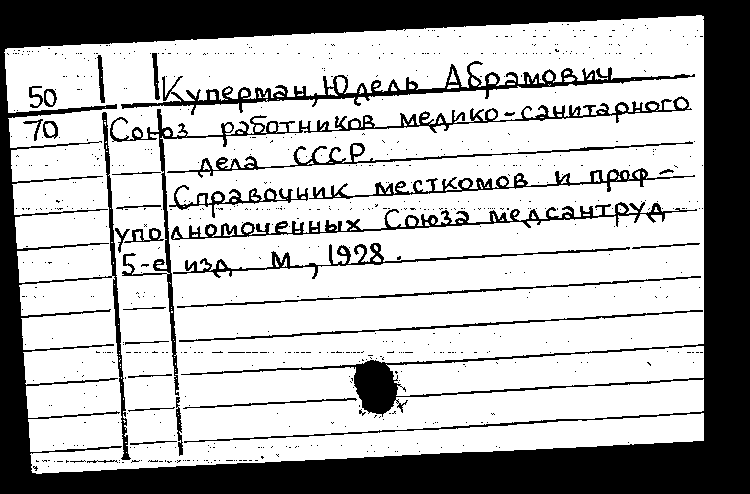 50 Куперман, Юдель Абрамович
70 Союз работников медико-санитарного
дела СССР.
Справочник месткомов и проф-
уполномоченных Союза медсантруд
5-е изд. М, 1928.